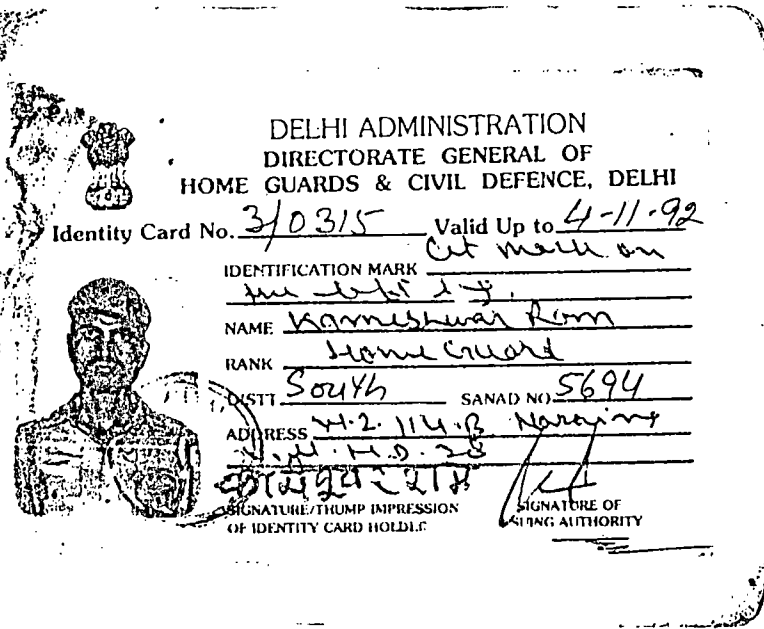 DELHI ADMINISTRATION
DIRECTORATE GENERAL OF
HOME GUARDS & CIVIL DEFENCE, DELHI
Identity Card No. 3/0315 Valid Up to 4-11-92
IDENTIFICATION MARK Cut mark on
the left
NAME Kameshwar Ram
RANK Home Guard
DISTT South SANAD NO. 5694
ADDRESS 114-B Naraina
कामेश्वर राम
SIGNATURE/THUMP IMPRESSION
OF IDENTITY CARD HOLDER
SIGNATURE OF
ISSUING AUTHORITY